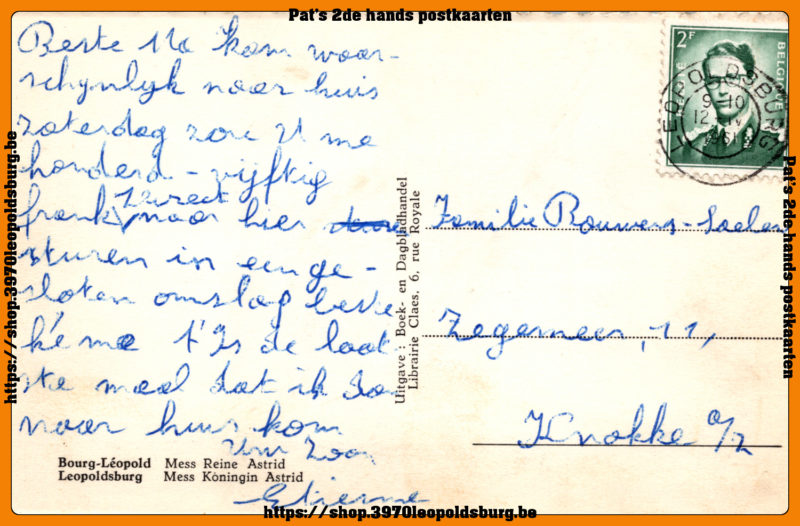 Pat's 2de hands postkaarten
Beste Ma kom waar-
schynlyk naar huis
zaterdag zou U me
honderd - vyftig
frank direct naar hier
sturen in een ge-
sloten omslag beste
ma t'Is de laat
ste maal dat ik zoo
naar huis kom
Uw Zoon
Etienne
Bourg-Léopold Mess Reine Astrid
Leopoldsburg Mess Koningin Astrid
Uitgave : Boek- en Dagbladhandel
Librairie Claes, 6, rue Royale
2F
BELGIE
BELGIQUE
LEOPOLDSBURG
9-10
12
1961
Familie Rouwens-Saelen
Zegemeer, 11,
Knokke a/z
https://shop.3970leopoldsburg.be
Pat's 2de hands postkaarten
https://shop.3970leopoldsburg.be